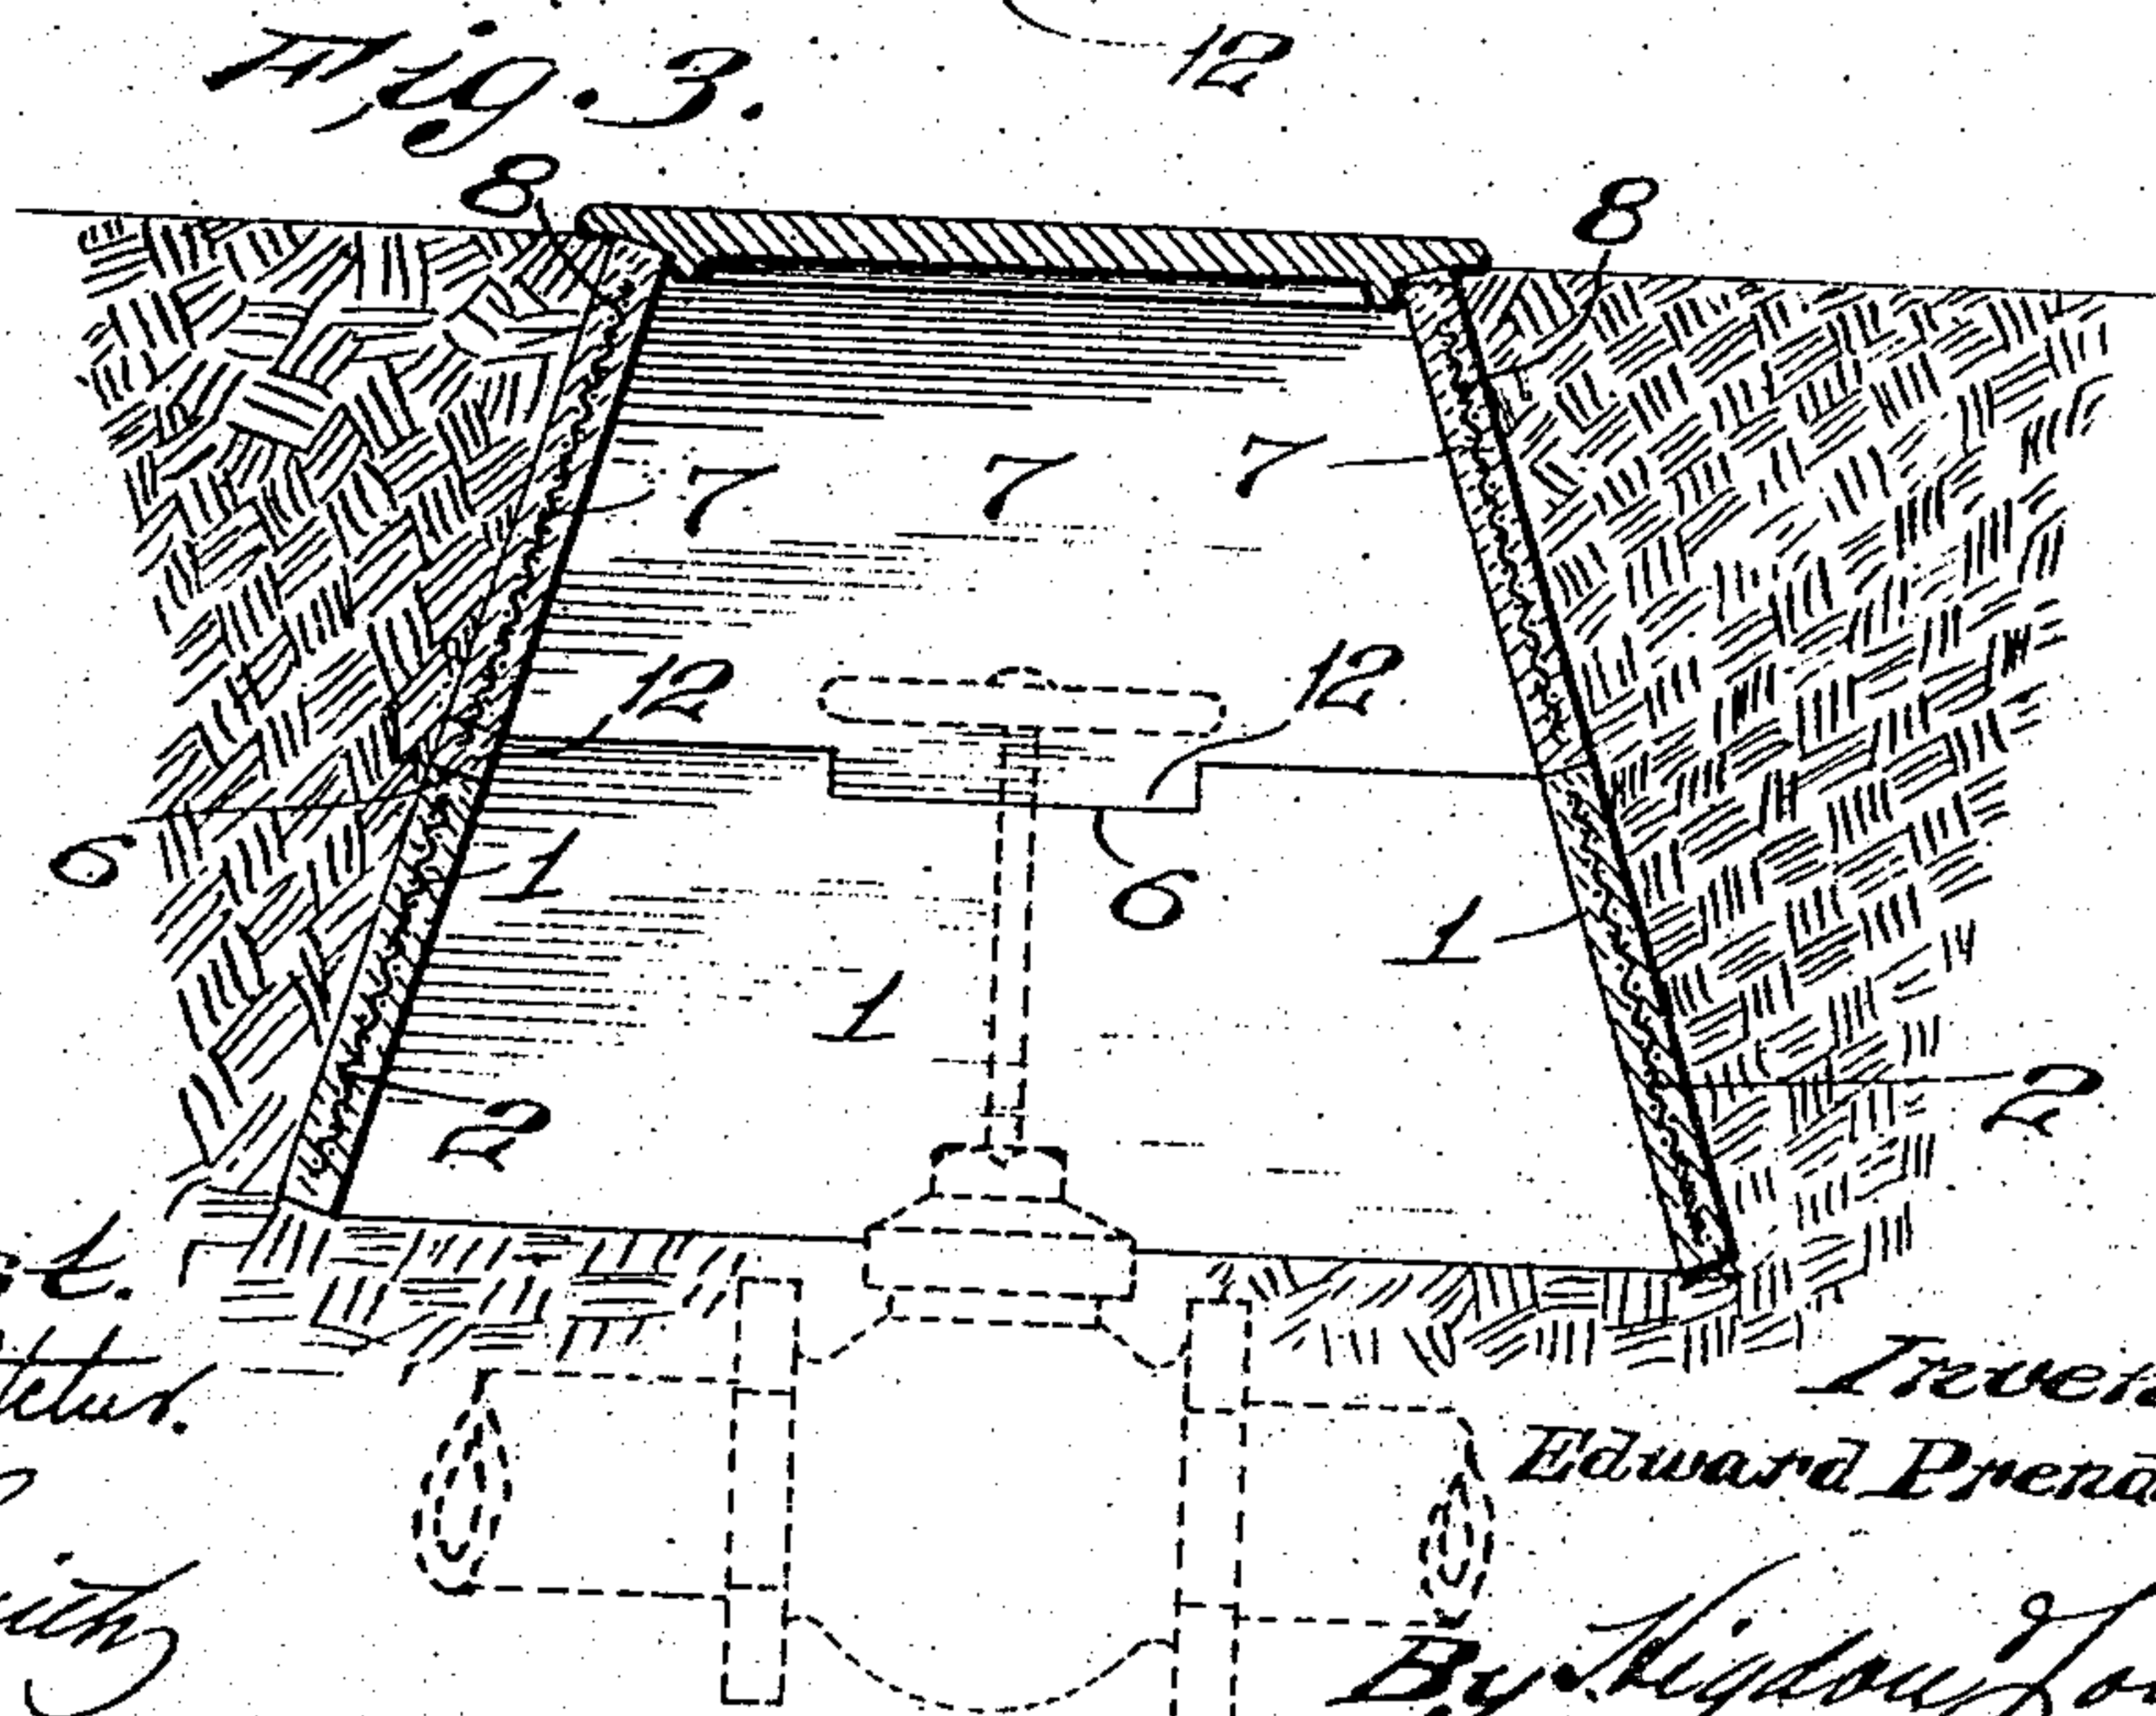 Fig. 3.
12
8
8
7 7 7
12 12
6
1
6
1
1
2
2
Edward
By